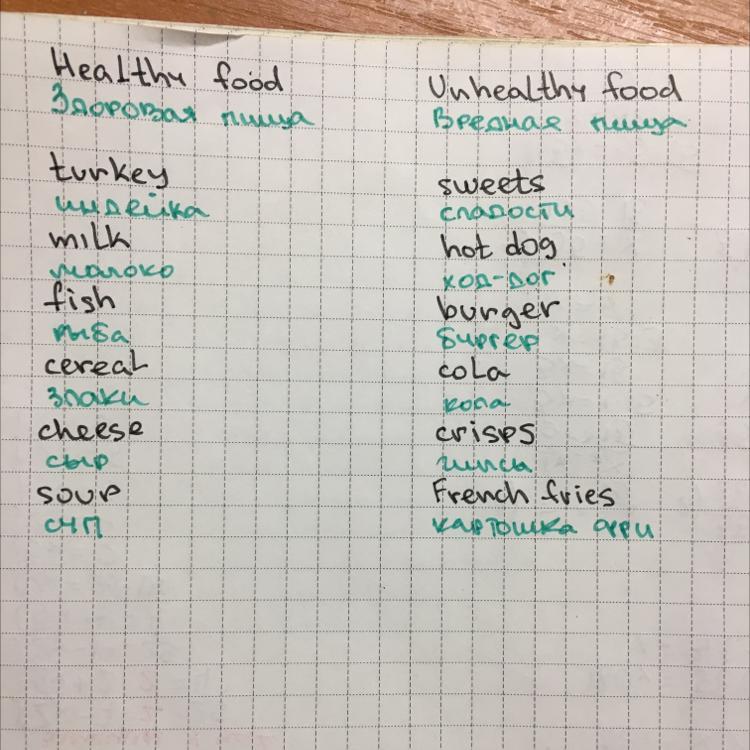 Healthy food
Здоровая пища
turkey
индейка
milk
молоко
fish
рыба
cereal
злаки
cheese
сыр
soup
суп
Unhealthy food
Вредная пища
sweets
сладости
hot dog
ход-дог
burger
бургер
cola
кола
crisps
чипсы
French fries
картошка фри